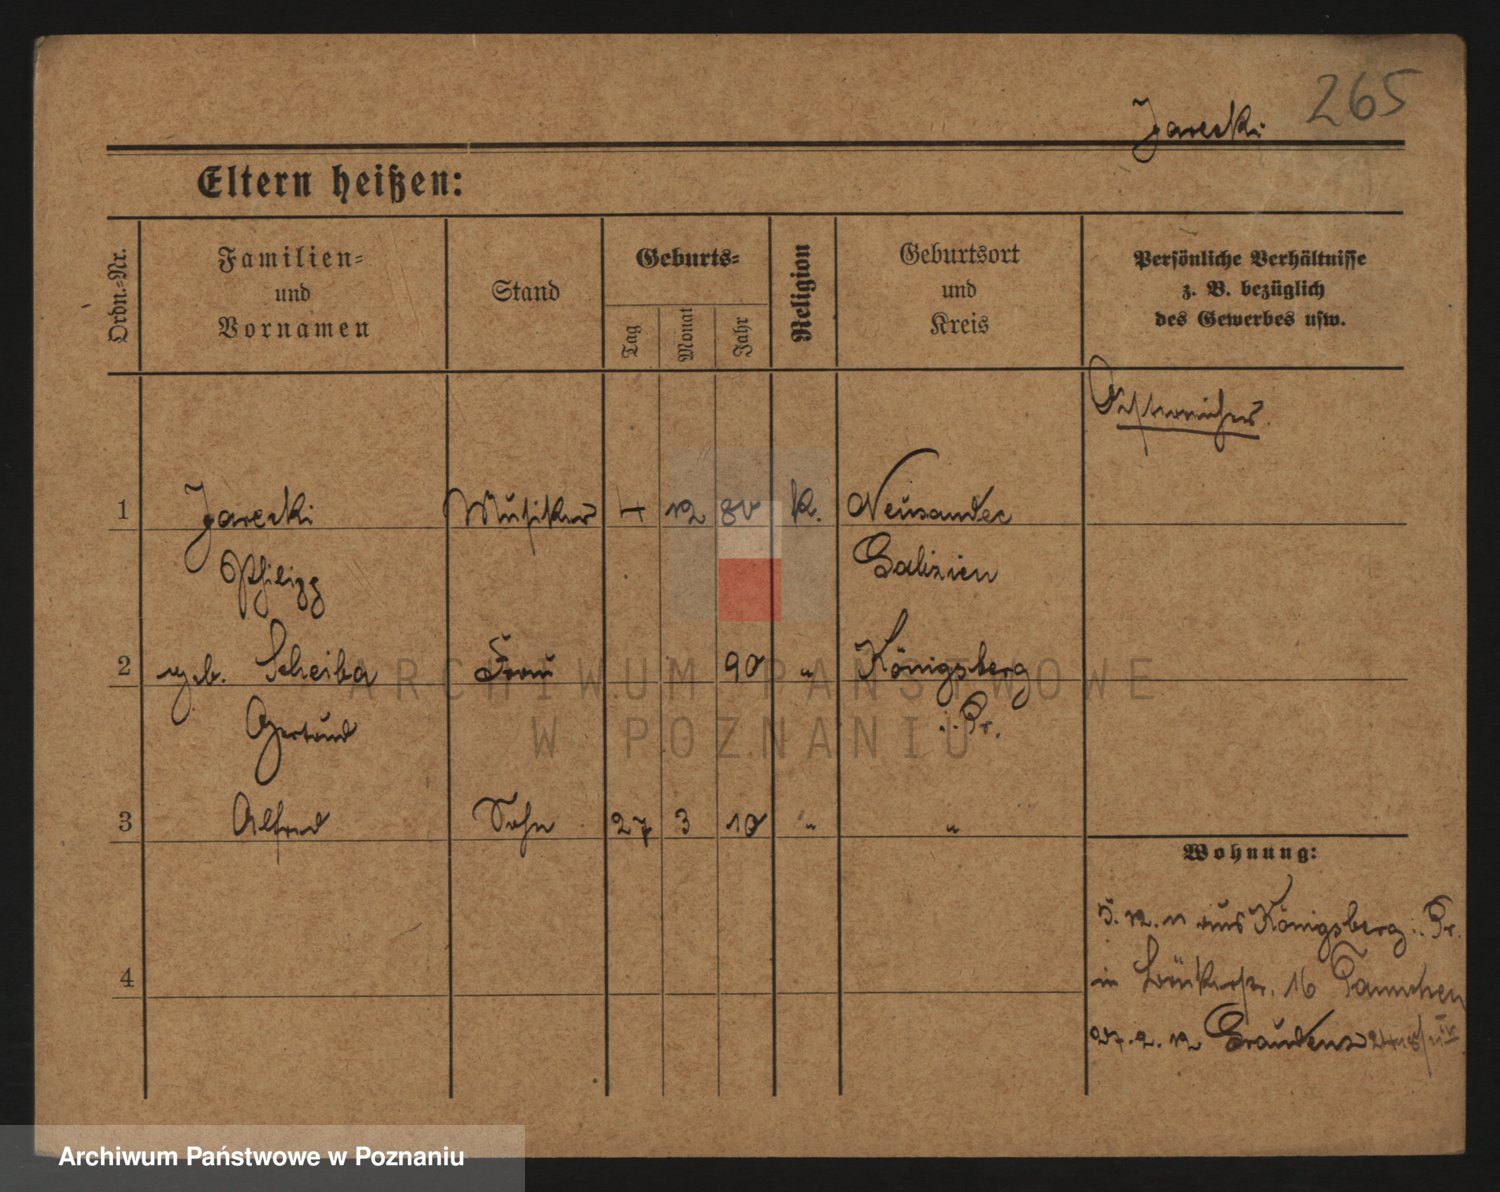 265
Jarecki
Eltern heißen:
Ordn.-Nr.
Familien-
und
Vornamen
Stand
Geburts-
Tag
Monat
Jahr
Religion
Geburtsort
und
Kreis
Persönliche Verhältnisse
z. B. bezüglich
des Gewerbes usw.
Österreicher.
1 Jarecki Musiker 4 12 80 k. Neusandec
Philipp Galizien
2 geb. Scheiba Frau 90 " Königsberg
Gertrud i. Pr.
3 Alfred Sohn 27 3 10 " "
Wohnung:
5. 12. 11 aus Königsberg i. Pr.
in 16
4
27. 2. 12 Graudenz
ARCHIWUM PAŃSTWOWE
W POZNANIU
Archiwum Państwowe w Poznaniu